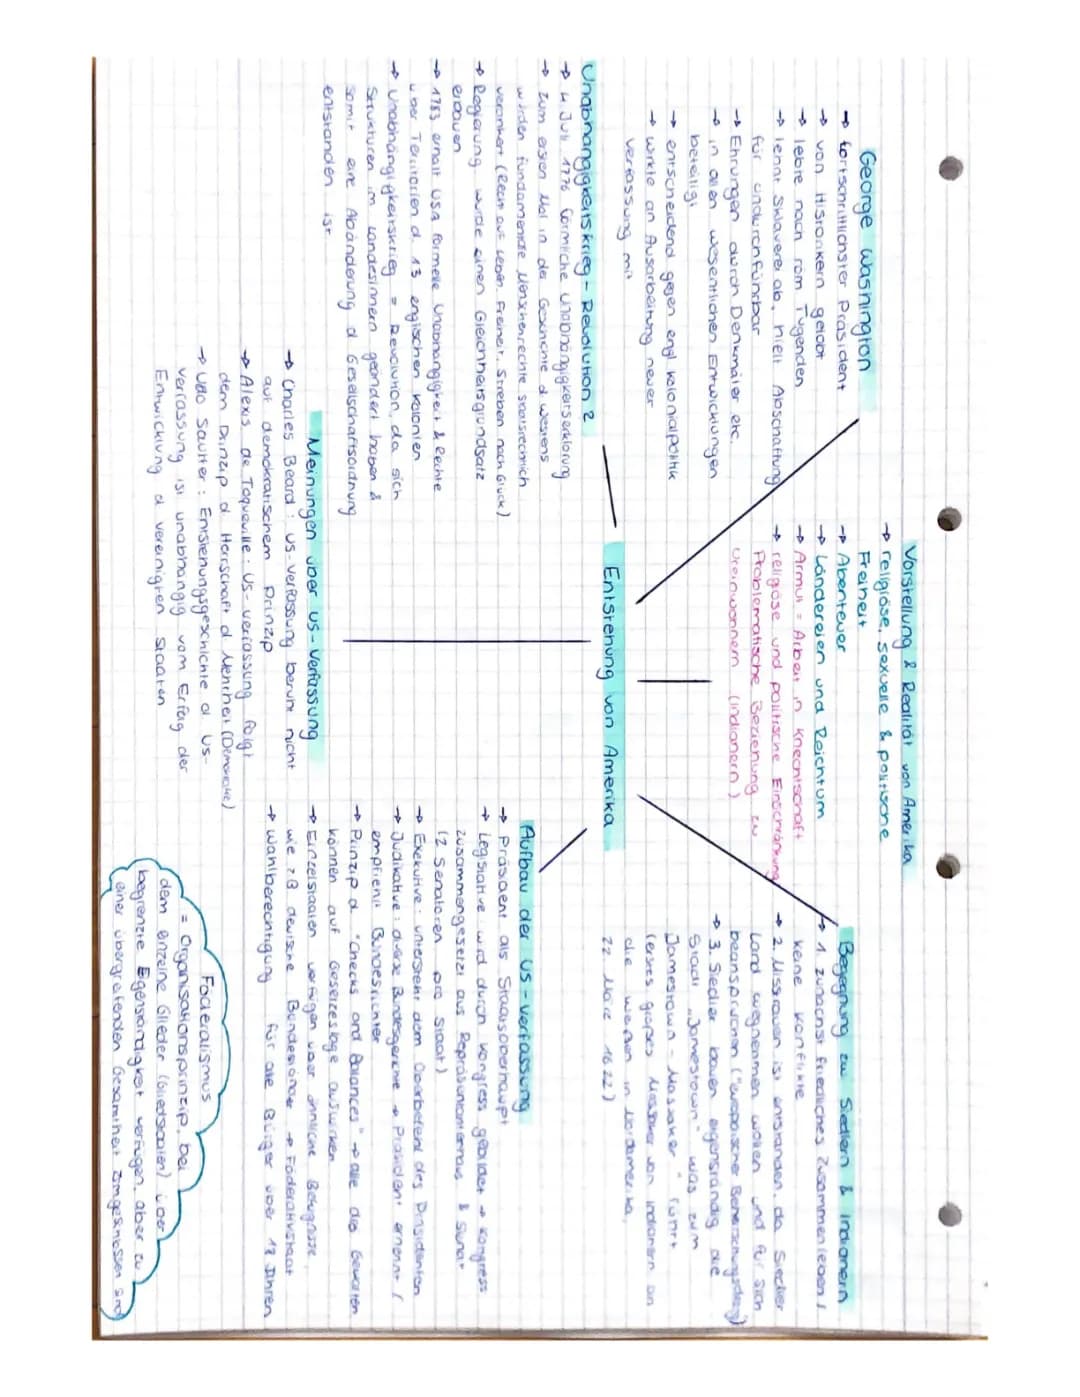 Vorstellung & Realität von Amerika
→ religiöse, sexuelle & politische
Freiheit
→ Abenteuer
→ Ländereien und Reichtum
→ Armut = Arbeit in Knechtschaft
→ religöse und politische Einschränkung
Problematische Beziehung zu
Ureinwohnern (Indianern)
George Washington
→ fortschrittlichster Präsident
→ von Historikern gelobt
→ lebte nach röm Tugenden
→ lehnt Sklaverei ab, hielt Abschaffung
für undurchführbar
→ Ehrungen durch Denkmäler etc.
→ in allen wesentlichen Entwicklungen
beteiligt
→ entscheidend gegen engl Kolonialpolitik
→ wirkte an Ausarbeitung neuer
Verfassung mit
Begegnung zw Siedlern & Indianern
→ 1. zunächst friedliches Zusammenleben /
keine Konflikte
→ 2. Misstrauen ist entstanden, da Siedler
Land wegnehmen wollen und für sich
beanspruchen ("europäischer Beherrschungsdrang)
→ 3. Siedler bauen eigenständig die
Stadt „Jamestown" was zum
„Jamestown - Massaker" führt
(erstes großes Massaker von Indianern an
die weißen in Nordamerika,
22 März 1622)
Unabhängigkeitskrieg - Revolution ?
→ 4 Juli 1776 förmliche Unabhängigkeitserklärung
→ zum ersten Mal in der Geschichte d Westens
würden fundamentale Menschenrechte staatsrechtlich
verankert (Recht auf Leben, Freiheit, Streben nach Glück)
→ Regierung wurde einen Gleichheitsgrundsatz
erbauen
→ 1783 erhält USA formelle Unabhängigkeit & Rechte
über Territorien d. 13 englischen Kolonien
→ Unabhängigkeitskrieg = Revolution, da sich
Strukturen im Landesinnern geändert haben &
somit eine Abänderung d Gesellschaftsordnung
entstanden ist
Entstehung von Amerika
Aufbau der US-Verfassung
→ Präsident als Staatsoberhaupt
→ Legislative wird durch Kongress gebildet → Kongress
zusammengesetzt aus Repräsentantenhaus & Senat
(2 Senatoren pro Staat)
→ Exekutive: untersteht dem Oberbefehl des Präsidenten
→ Judikative: diverse Bundesgerichte → Präsident ernennt /
empfiehlt Bundesrichter
→ Prinzip d. "Checks and Balances" → alle drei Gewalten
können auf Gesetzeslage auswirken
→ Einzelstaaten verfügen über ähnliche Befugnisse,
wie z B deutsche Bundesländer → Föderativstaat
→ Wahlberechtigung für alle Bürger über 18 Jahren
Meinungen über US-Verfassung
→ Charles Beard: US-Verfassung beruht nicht
auf demokratischem Prinzip
→ Alexis de Toqueville: US-Verfassung folgt
dem Prinzip d Herrschaft d Mehrheit (Demokratie)
→ Udo Sautter: Entstehungsgeschichte d US-
Verfassung ist unabhängig vom Erfolg der
Entwicklung d vereinigten Staaten
Föderalismus
= Organisationsprinzip, bei
dem einzelne Glieder (Gliedstaaten) über
begrenzte Eigenständigkeit verfügen, aber zu
einer übergreifenden Gesamtheit zmgeschlossen sind